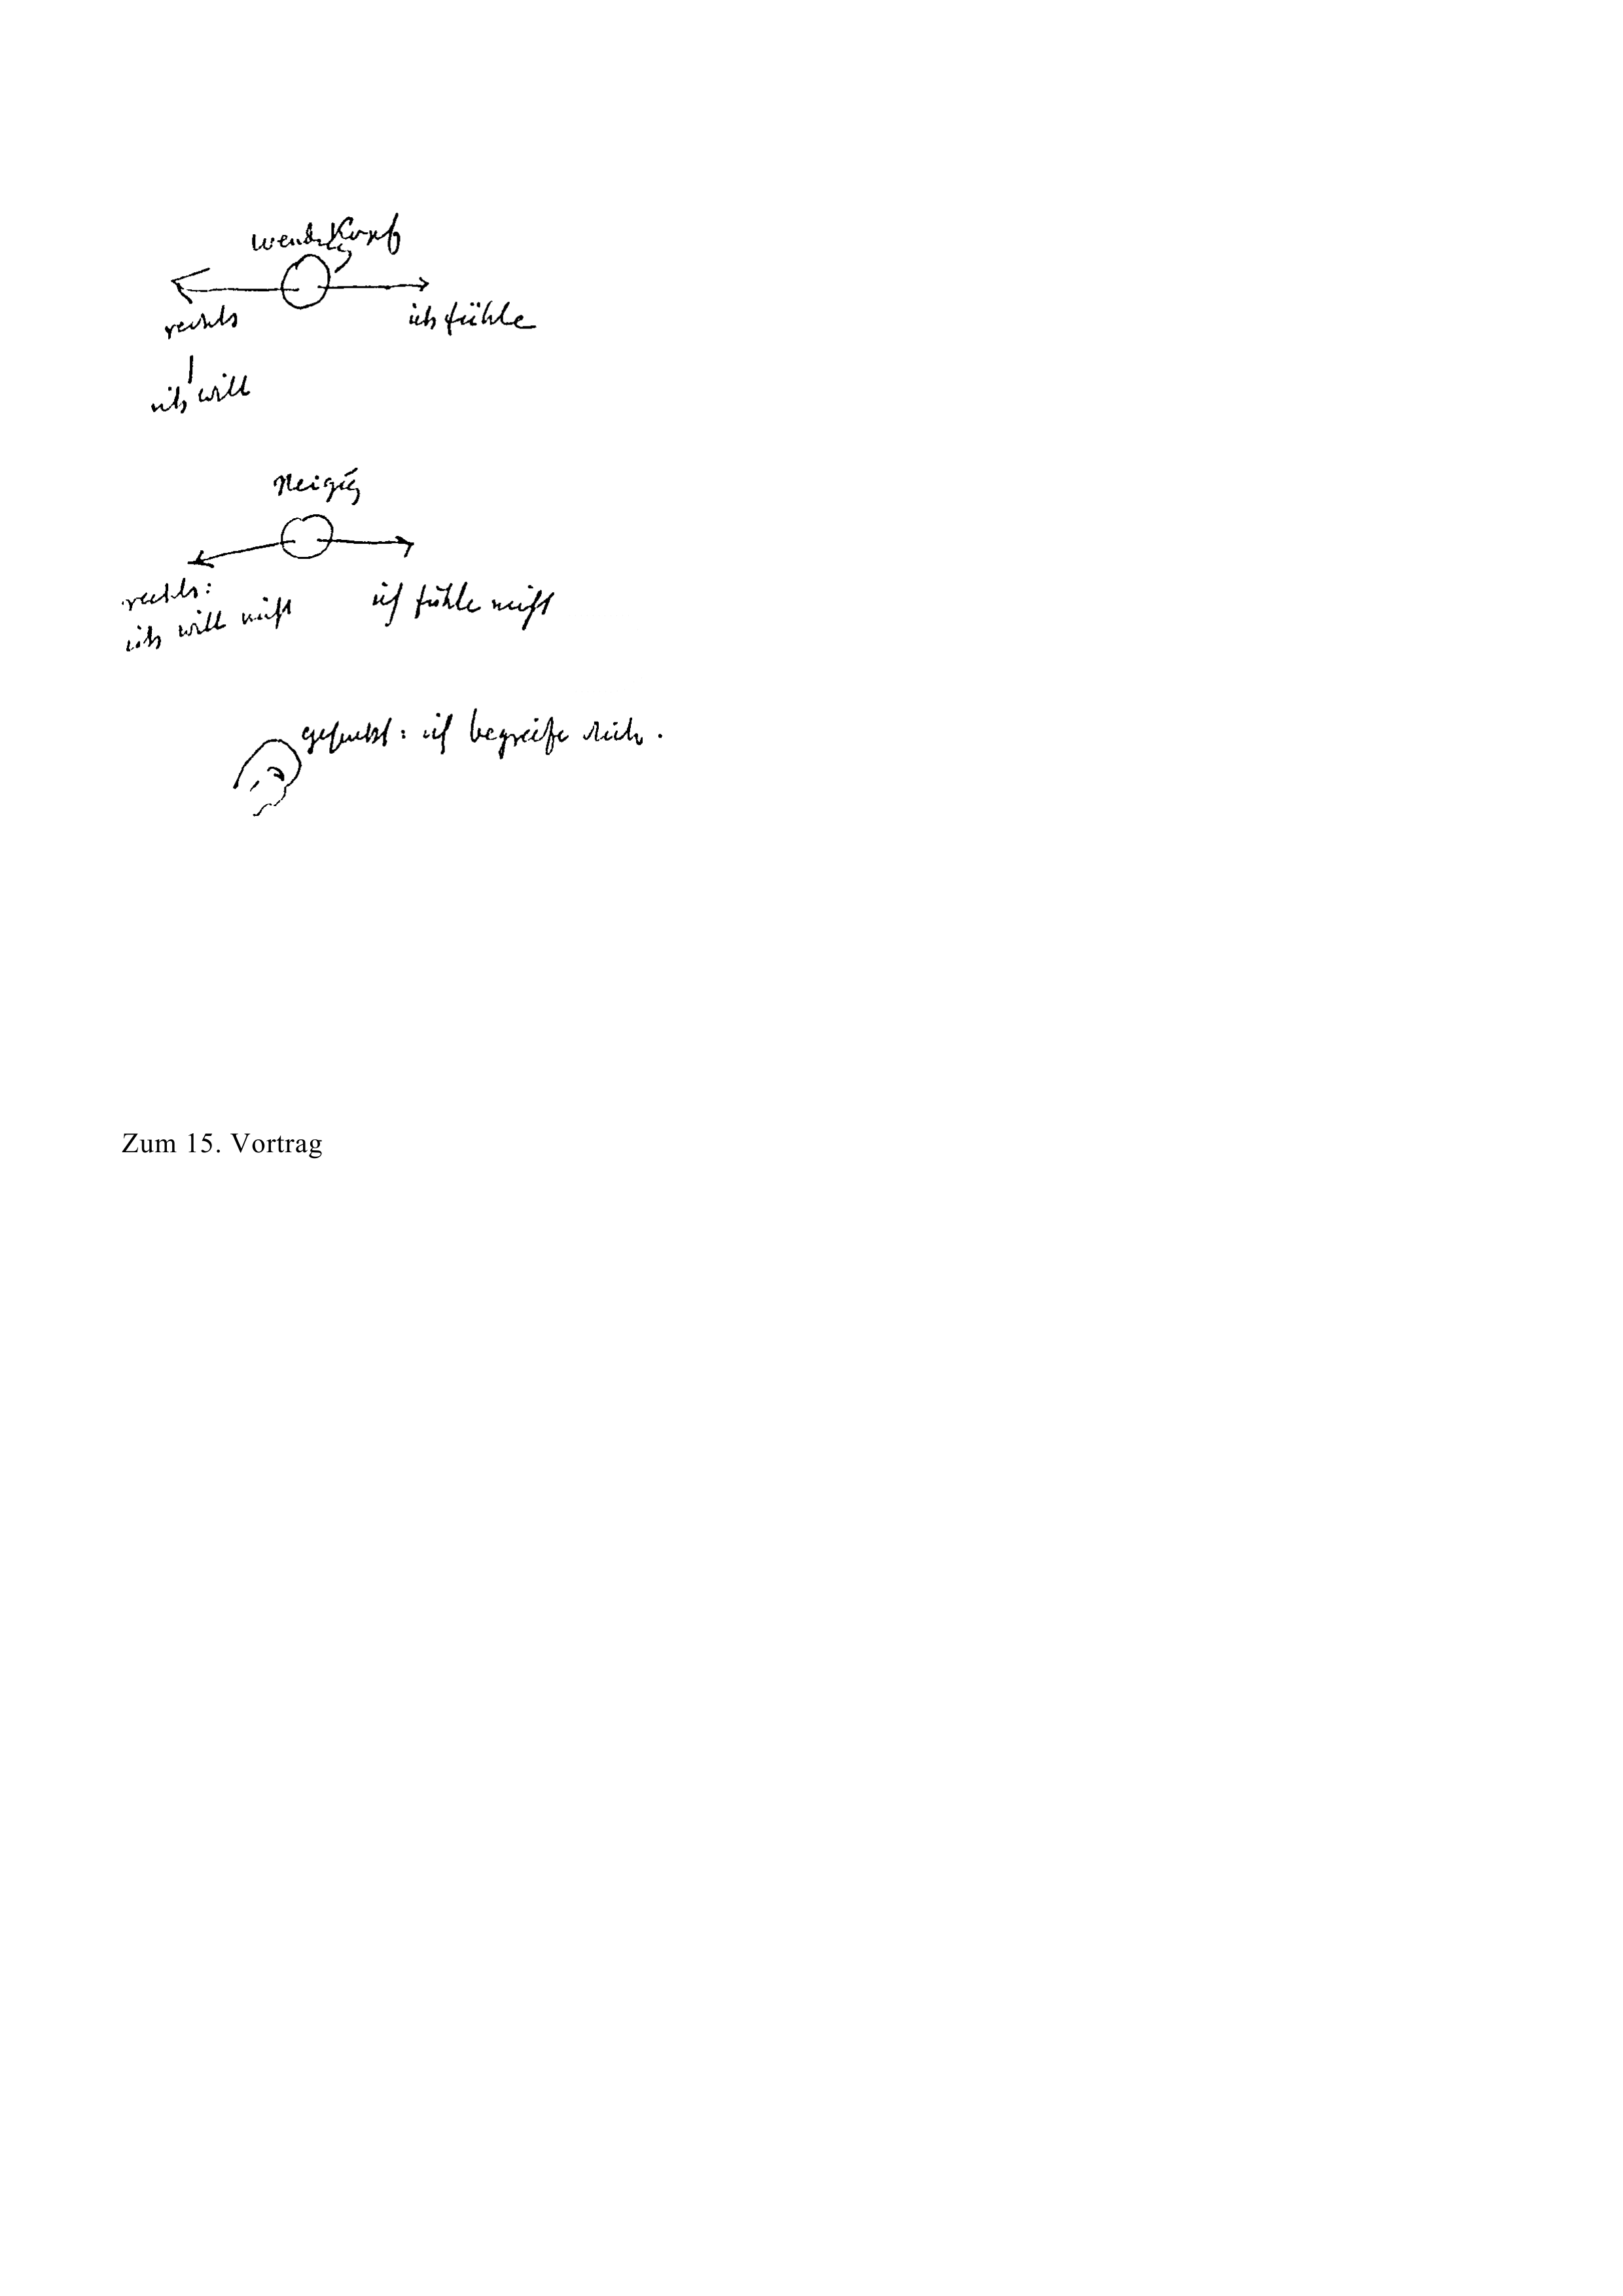 Wendung Kopf
rechts
ich fühle
ich will
Neigung
rechts:
ich will nicht
ich fühle nicht
gesenkt: ich begreife dich.
Zum 15. Vortrag